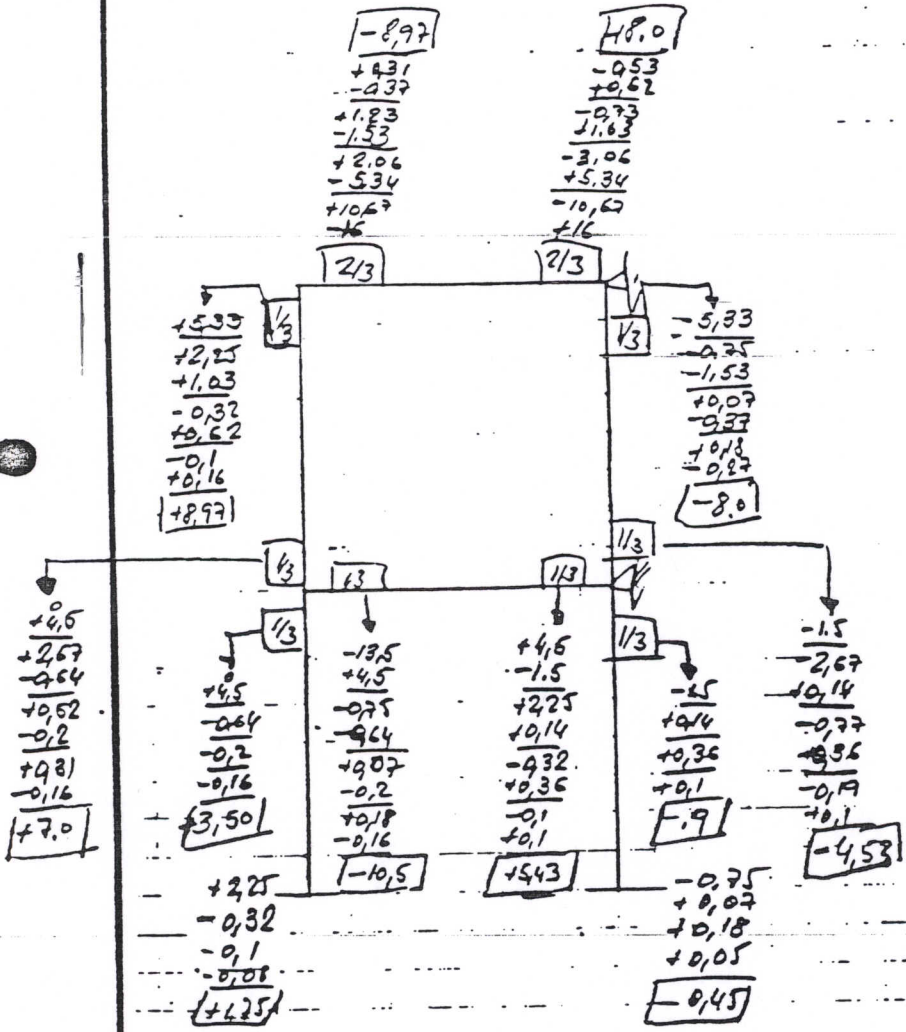 -8,97
+8.0
+0,31
-0,37
+1.23
-1.53
+2.06
-5.34
+10,67
-16
-0,53
+0,62
-0,73
+1.63
-3,06
+5.34
-10,67
+16
2/3
2/3
1/3
1/3
+5,33
+2,25
+1,03
-0,32
+0,62
-0,1
+0,16
+8,97
-5,33
-0,75
-1,53
+0,07
-0,37
+0,18
-0,27
-8.0
1/3
1/3
1/3
1/3
1/3
1/3
0
+4,5
+2,67
-0,64
+0,52
-0,2
+0,31
-0,16
+7.0
0
+4,5
-0,64
-0,2
-0,16
+3,50
-13,5
+4,5
-0,75
-0,64
+0,07
-0,2
+0,18
-0,16
-10,5
+4,5
-1.5
+2,25
+0,14
-0,32
+0,36
-0,1
+0,1
+5,43
-1.5
+0,14
+0,36
+0,1
-.9
-1.5
-2,67
+0,14
-0,77
+0,36
-0,19
+0,1
-4,53
+2,25
-0,32
-0,1
-0,08
+1,75
-0,75
+0,07
+0,18
+0,05
-0,45